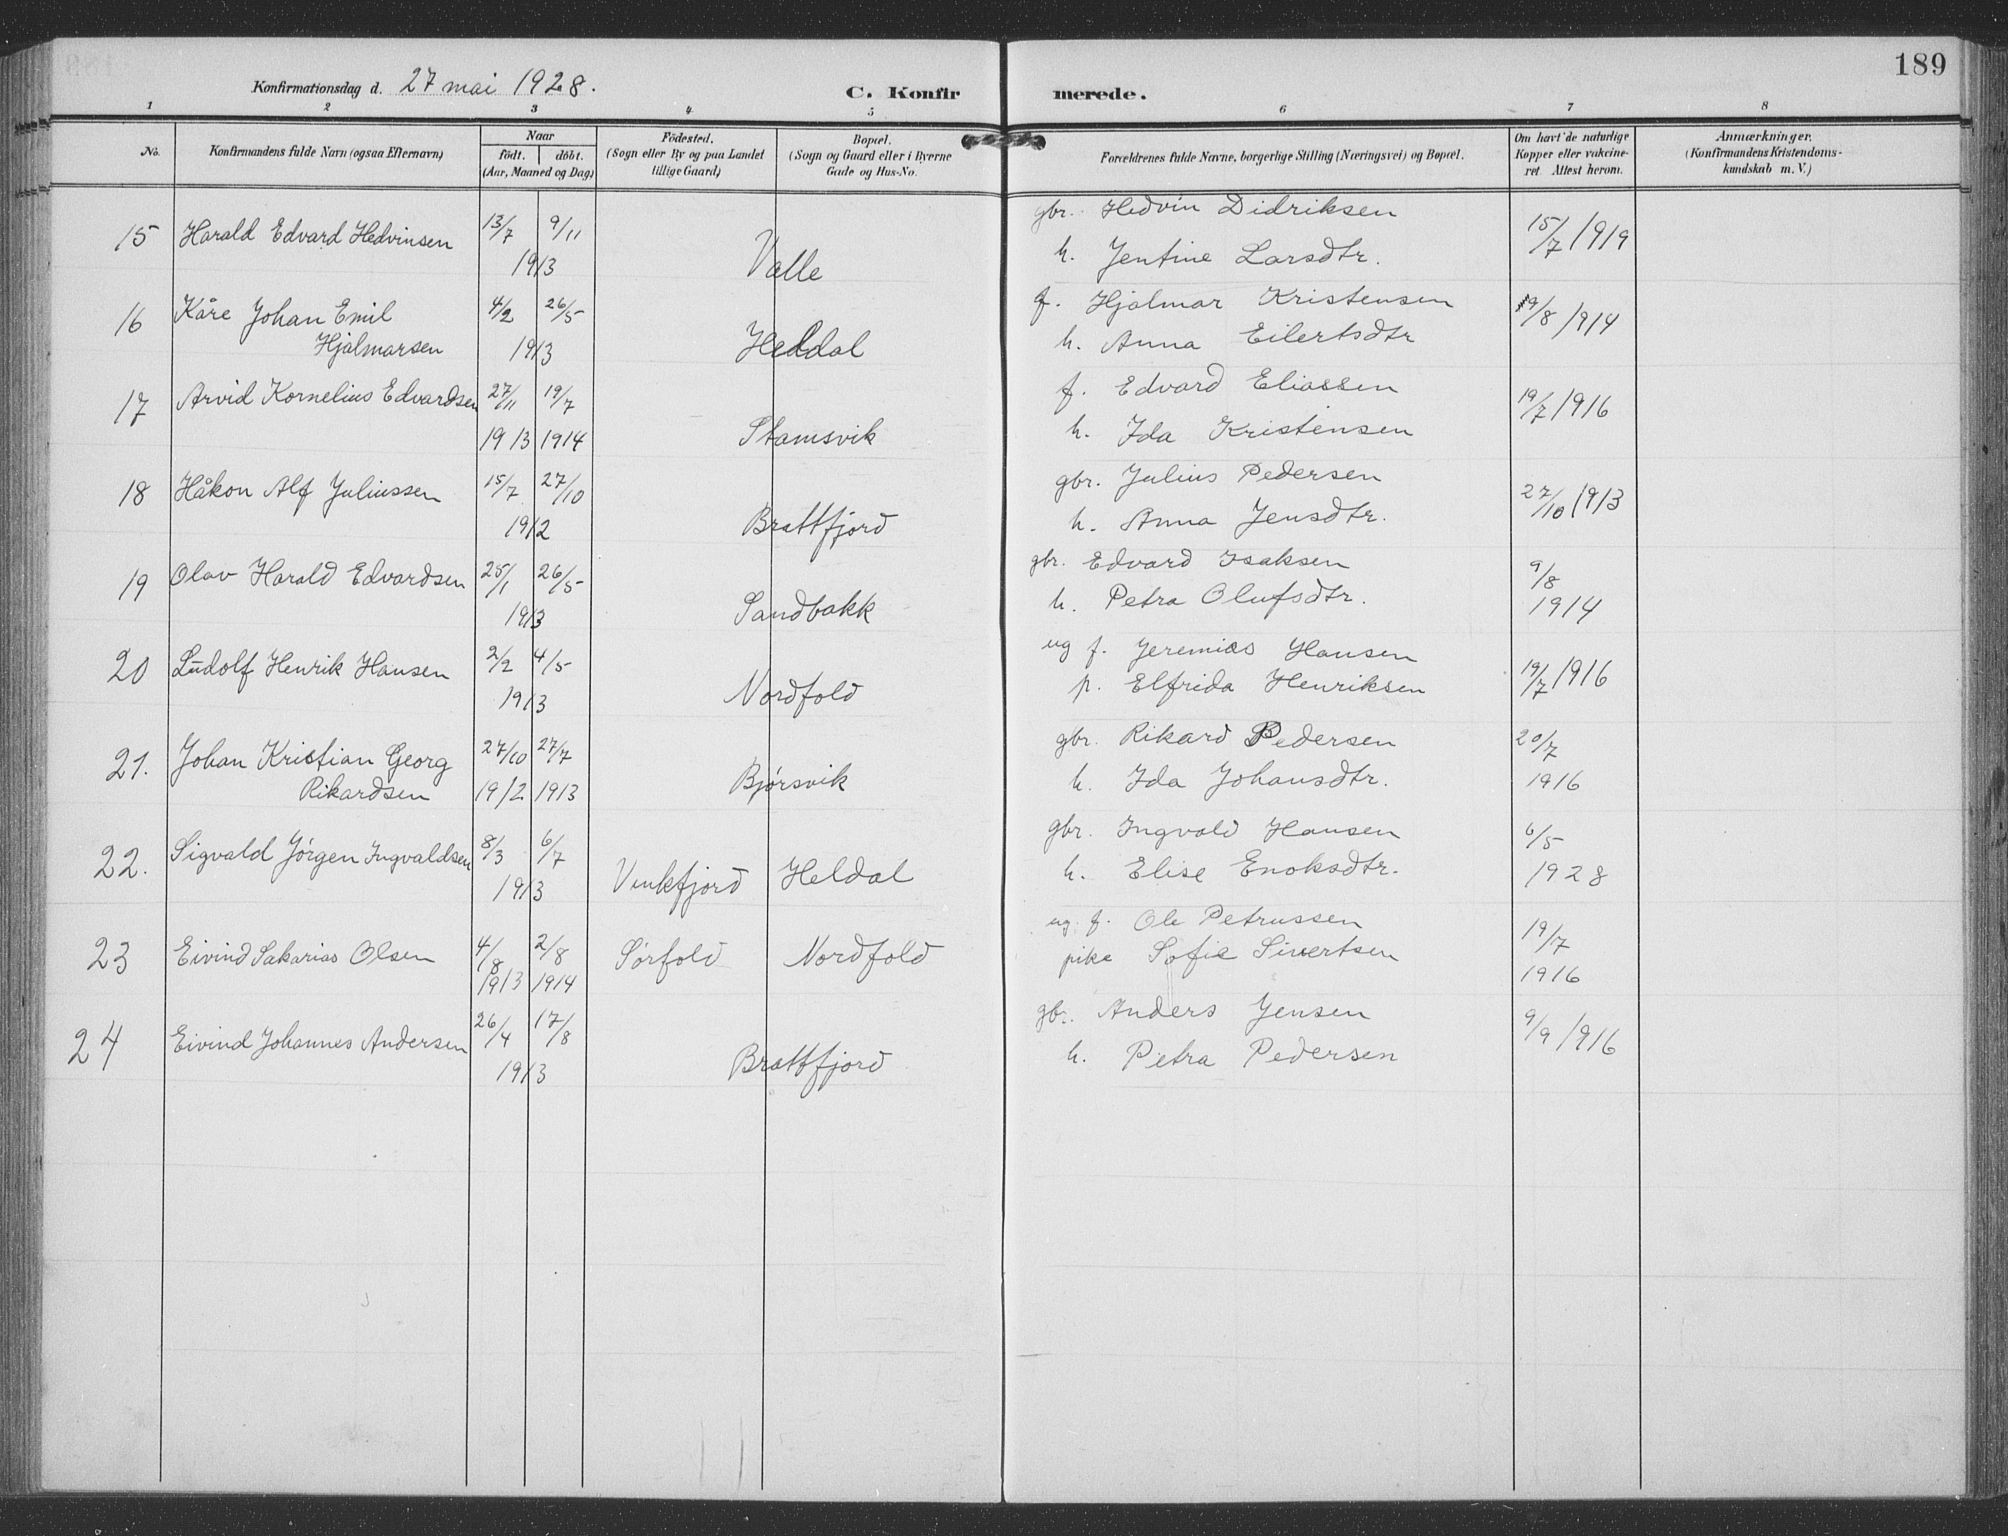 189
Konfirmationsdag d. 27 mai 1928.
C. Konfirmerede.
1 2 3 4 5 6 7 8
No.
Konfirmandens fulde Navn (ogsaa Efternavn)
Naar
født. | døbt.
(Aar, Maaned og Dag)
Fødested.
(Sogn eller By og paa Landet
tillige Gaard)
Bopæl.
(Sogn og Gaard eller i Byerne
Gade og Hus-No.
Forældrenes fulde Navne, borgerlige Stilling (Næringsvei) og Bopæl.
Om havt de naturlige
Kopper eller vakcine-
ret. Attest herom.
Anmærkninger.
(Konfirmandens Kristendoms-
kundskab m. V.)
15 Harald Edvard Hedvinsen 13/7 9/11 gbr. Hedvin Didriksen 15/7 1919
1913 Valle h. Jentine Larsdtr.
16 Kåre Johan Emil 4/2 26/5 f. Hjalmar Kristensen 19/8 1914
Hjalmarsen 1913 Heldal h. Anna Eilertsdtr
17 Arvid Kornelius Edvardsen 27/11 19/7 f. Edvard Eliassen 19/7 1916
1913 1914 Stamsvik h. Ida Kristensen
18 Håkon Alf Juliussen 15/7 27/10 gbr. Julius Pedersen 27/10 1913
1912 Brattfjord h. Anna Jensdtr.
19 Olav Harald Edvardsen 25/1 26/5 gbr. Edvard Isaksen 9/8
1913 Sandbakk h. Petra Olufsdtr. 1914
20 Ludolf Henrik Hansen 2/2 4/5 ug f. Jeremias Hansen 19/7 1916
1913 Nordfold p. Elfrida Henriksen
21. Johan Kristian Georg 27/10 27/7 gbr. Rikard Pedersen 20/7
Rikardsen 1912 1913 Bjørsvik h. Ida Johansdtr. 1916
22. Sigvald Jørgen Ingvaldsen 8/3 6/7 gbr. Ingvald Hansen 6/5
1913 Vinkfjord Heldal h. Elise Enoksdtr. 1928
23 Eivind Sakarias Olsen 4/8 2/8 Sørfold Nordfold ug. f. Ole Petrussen 19/7
1913 1914 pike Sofie Sivertsen 1916
24 Eivind Johannes Andersen 26/4 17/8 gbr. Anders Jensen 9/9 1916
1913 Brattfjord h. Petra Pedersen